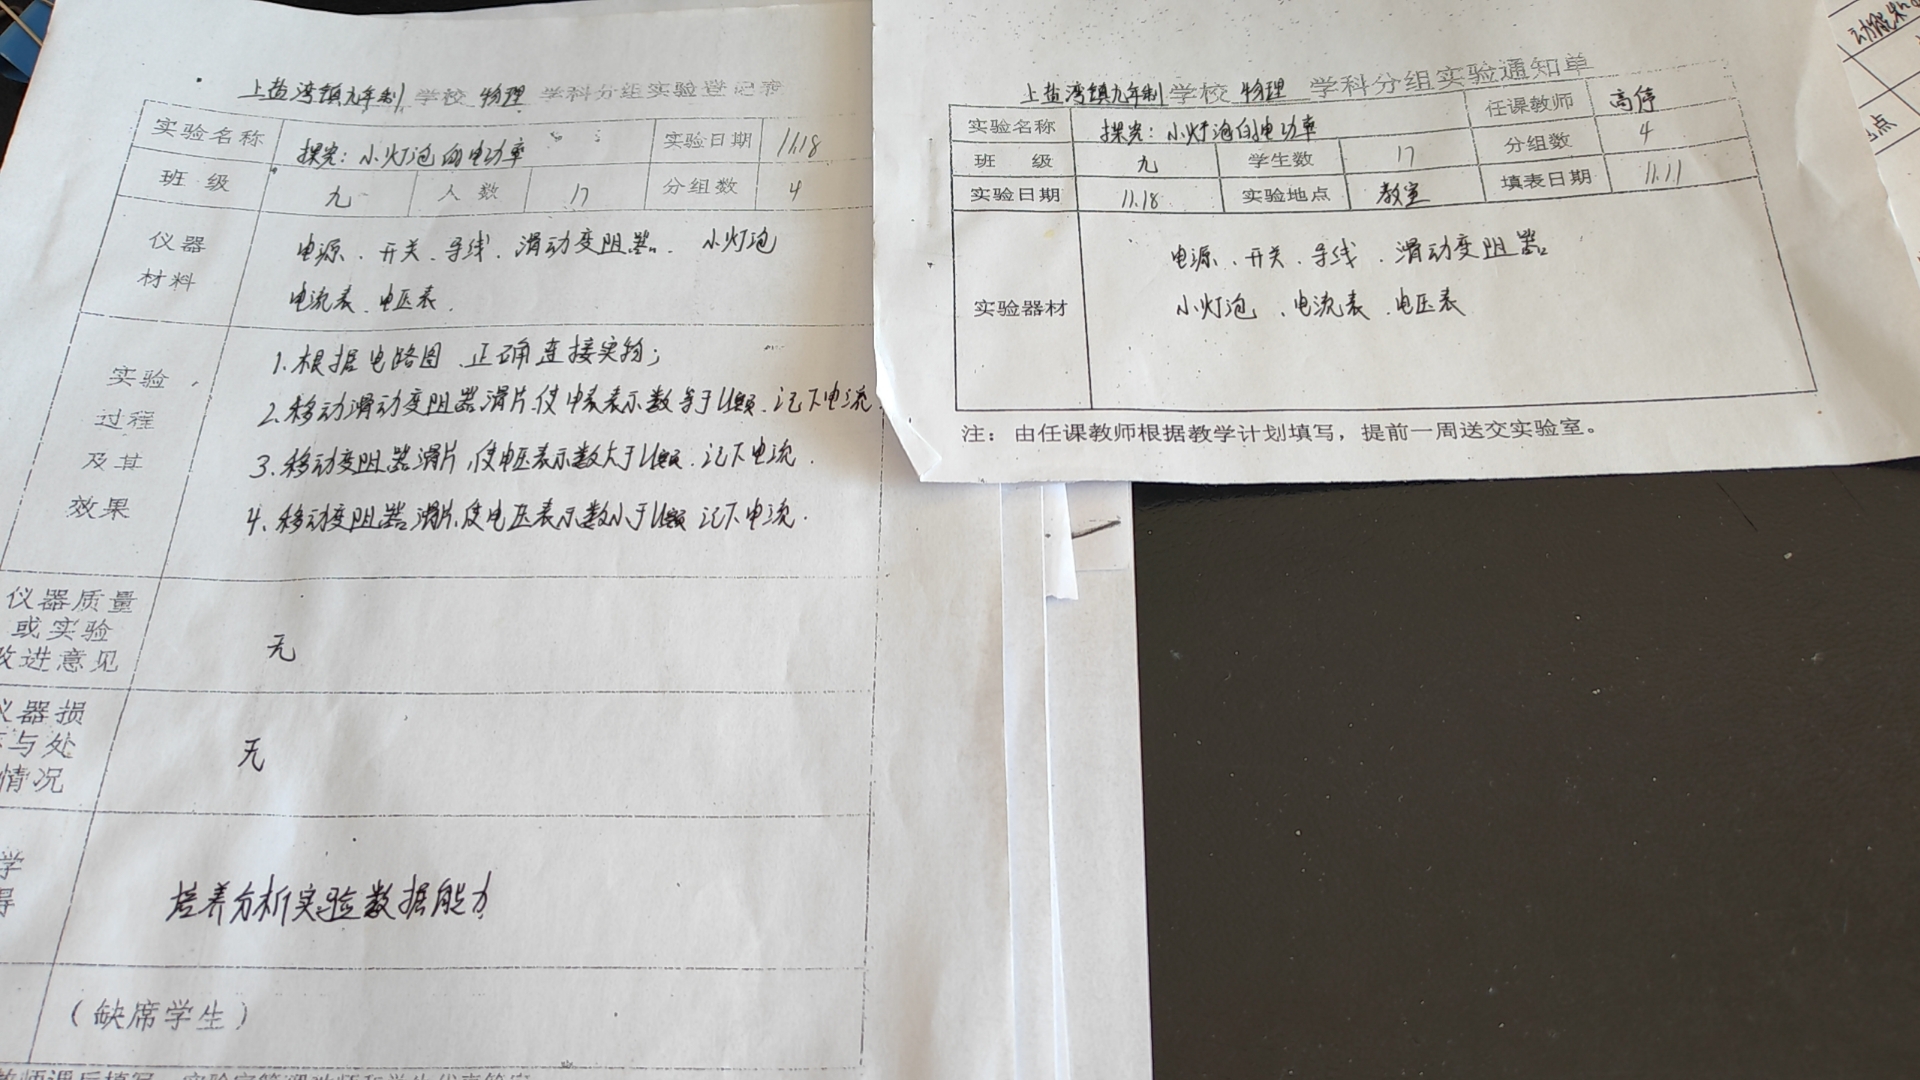 上盐湾镇九年制 学校 物理 学科分组实验登记表
实验名称 探究：小灯泡的电功率 实验日期 11.18
班 级 九 人 数 17 分组数 4
仪器
材料
电源、开关、导线、滑动变阻器、小灯泡
电流表、电压表.
实验
过程
及其
效果
1.根据电路图、正确连接实物；
2.移动滑动变阻器滑片,使电表示数等于U额.记下电流.
3.移动变阻器滑片,使电压表示数大于U额.记下电流.
4.移动变阻器滑片,使电压表示数小于U额 记下电流.
仪器质量
或实验
改进意见
无
仪器损
与处
情况
无
学
得
培养分析实验数据能力
（缺席学生）
上盐湾镇九年制 学校 物理 学科分组实验通知单
实验名称 探究：小灯泡的电功率 任课教师 高停
班 级 九 学生数 17 分组数 4
实验日期 11.18 实验地点 教室 填表日期 11.11
实验器材
电源、开关、导线、滑动变阻器
小灯泡、电流表、电压表
注：由任课教师根据教学计划填写，提前一周送交实验室。
动能和
点